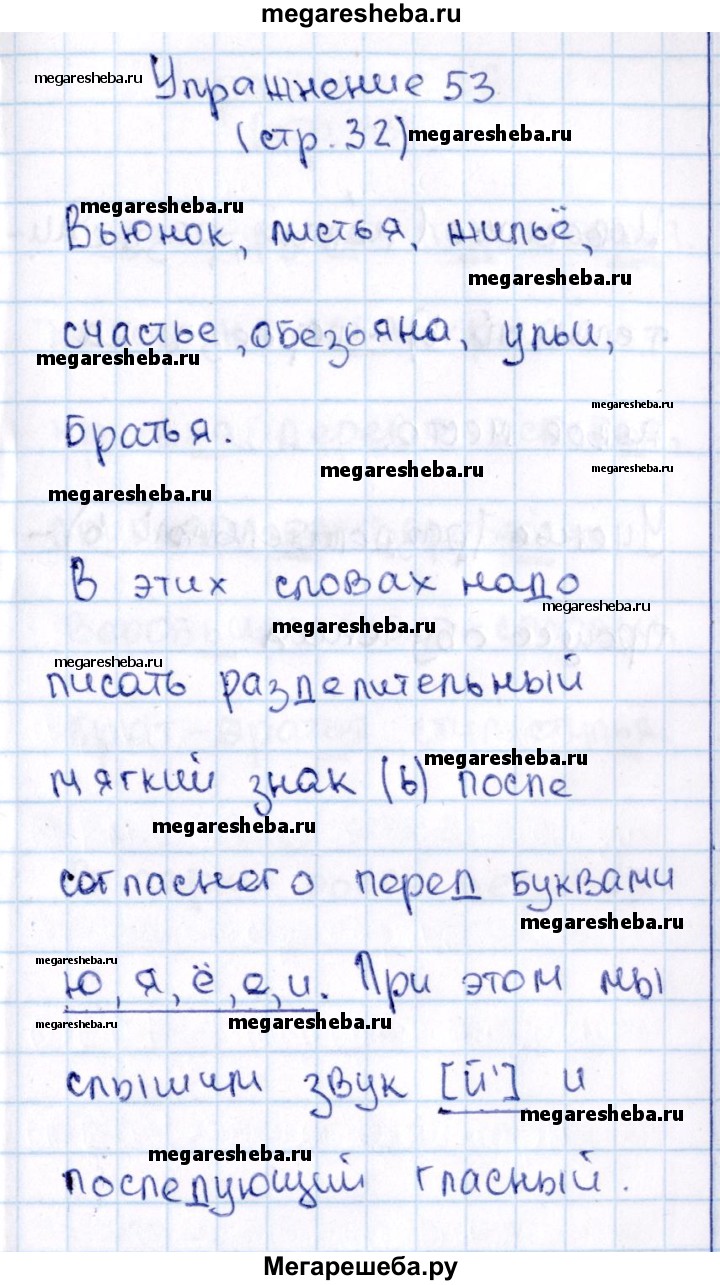 megaresheba.ru
megaresheba.ru
Упражнение 53
(стр. 32)
megaresheba.ru
megaresheba.ru
Вьюнок, листья, жильё,
megaresheba.ru
счастье, обезьяна, ульи,
megaresheba.ru
megaresheba.ru
братья.
megaresheba.ru
megaresheba.ru
megaresheba.ru
В этих словах надо
megaresheba.ru
megaresheba.ru
megaresheba.ru
писать разделительный
мягкий знак (ь) после
megaresheba.ru
megaresheba.ru
согласного перед буквами
megaresheba.ru
megaresheba.ru
ю, я, ё, е, и. При этом мы
megaresheba.ru
megaresheba.ru
слышим звук [й'] и
megaresheba.ru
megaresheba.ru
последующий гласный.
Мегарешеба.ру